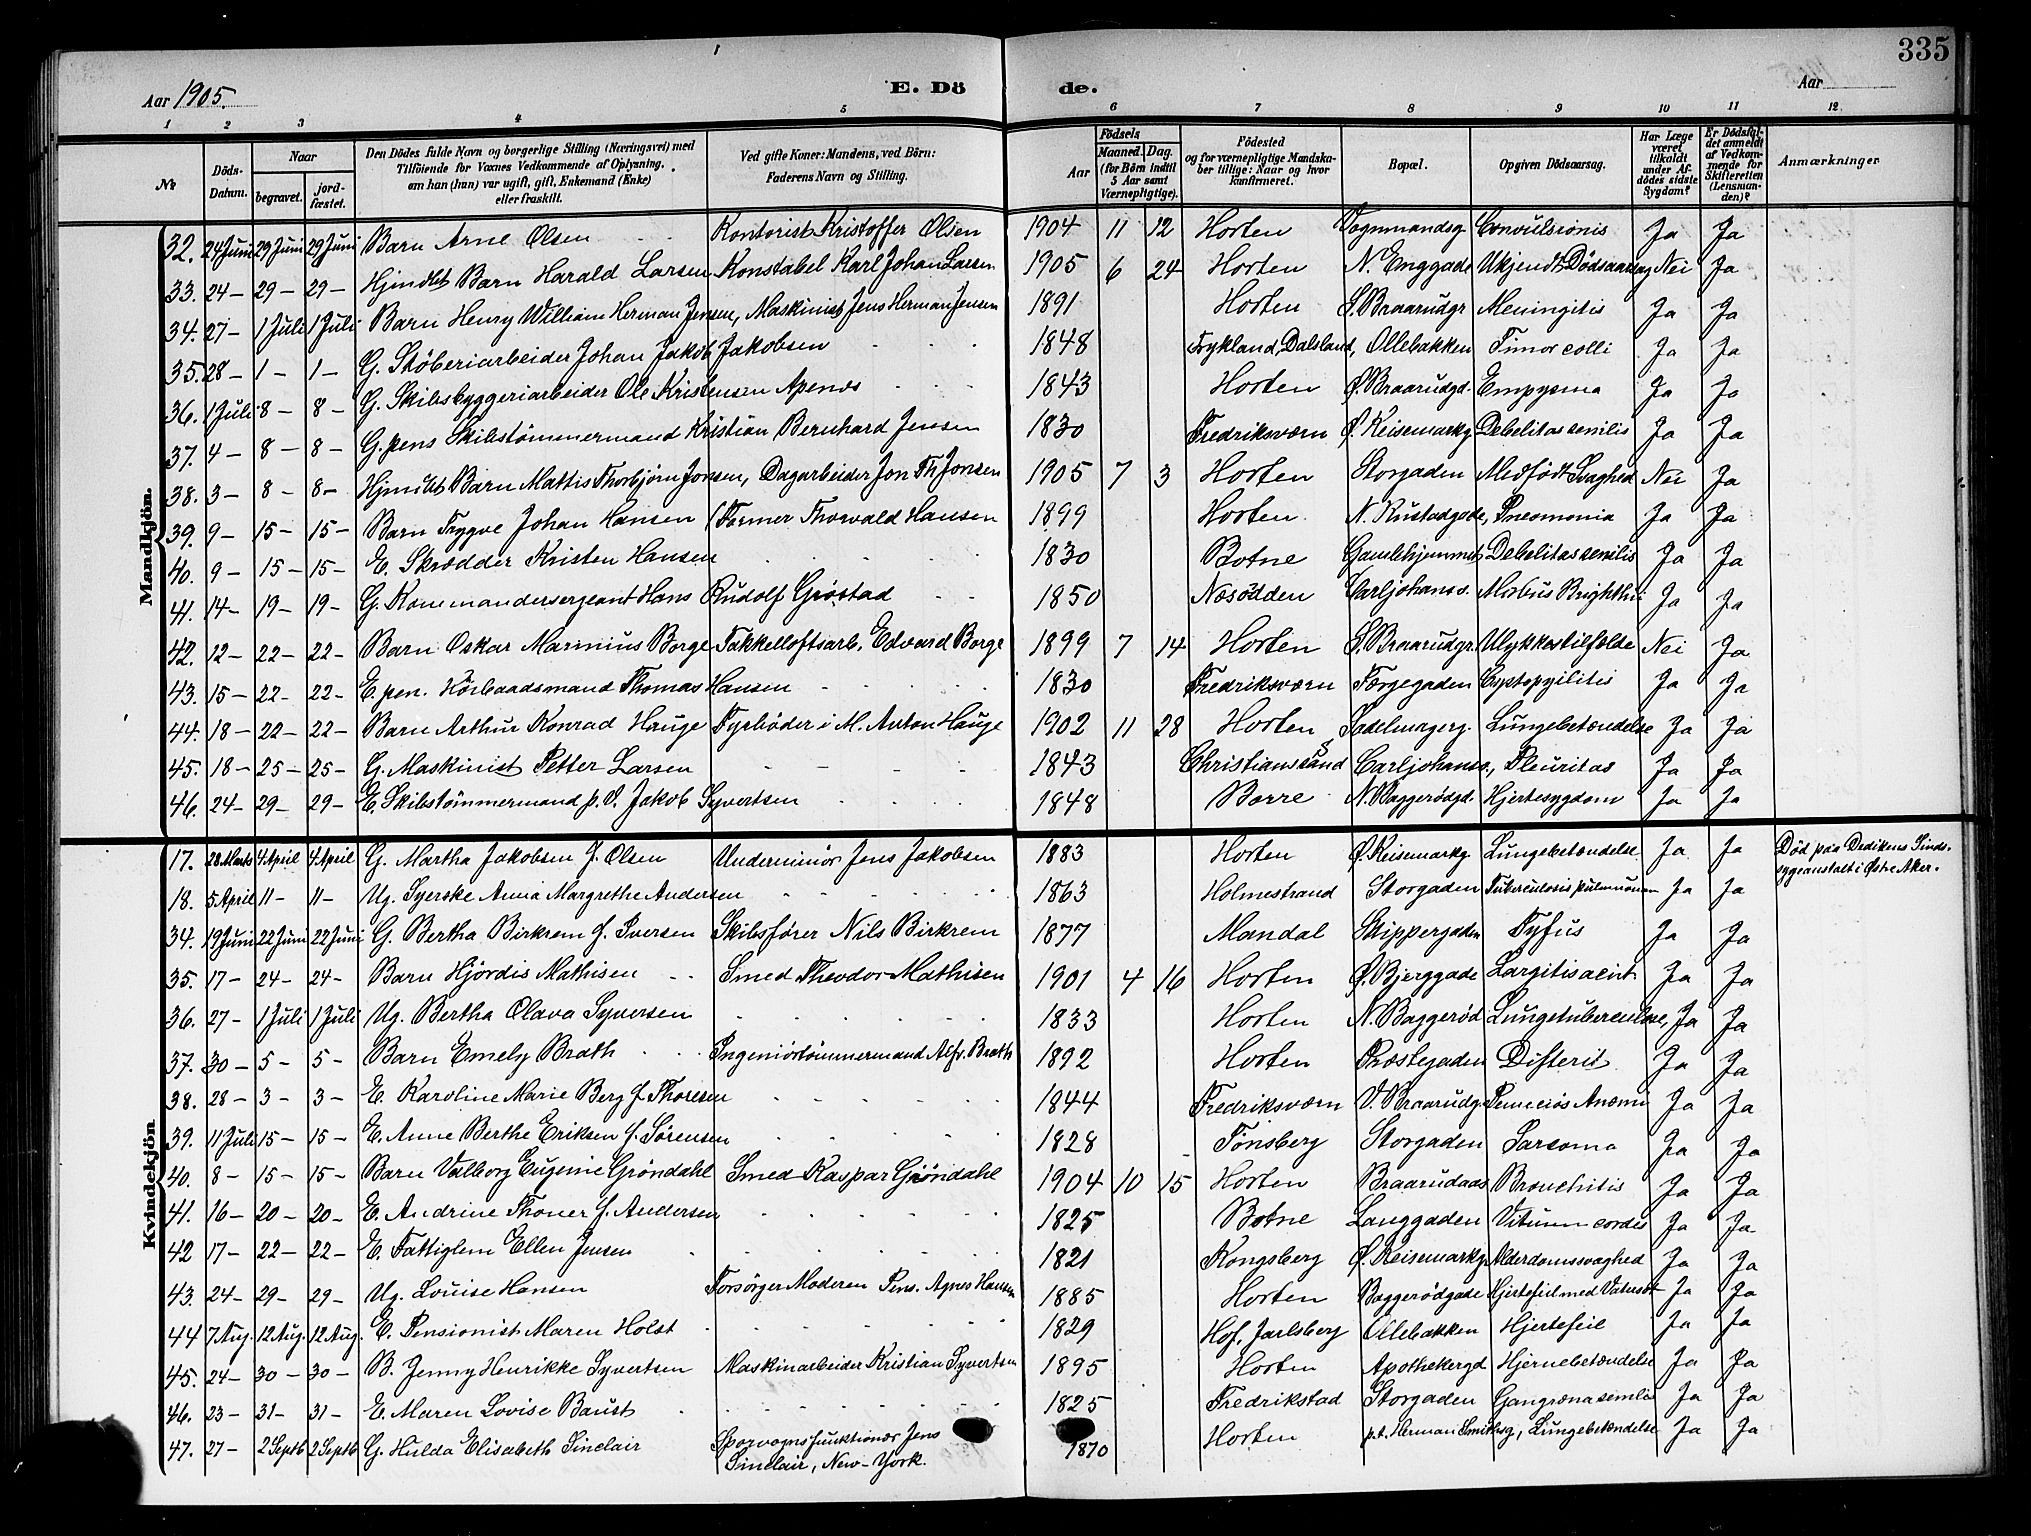 335
Aar 1905.
E. Dö de.
Aar
1 2 3 4 5 6 7 8 9 10 11 12
№ | Döds-Datum. | Naar begravet. | jord-fæstet. | Den Dödes fulde Navn og borgerlige Stilling (Næringsvei) med Tilföiende for Voxnes Vedkommende af Oplysning, om han (hun) var ugift, gift, Enkemand (Enke) eller fraskilt. | Ved gifte Koner: Mandens, ved Börn: Faderens Navn og Stilling. | Födsels Aar | Maaned. Dag. (for Börn indtil 5 Aar samt Værnepligtige). | Födested og for værnepligtige Mandskaber tillige: Naar og hvor kunfirmeret. | Bopæl. | Opgiven Dödsaarsag. | Har Læge været tilkaldt under Afdödes sidste Sygdom? | Er Dödsfaldet anmeldt af Vedkommende for Skifteretten (Lensmanden)? | Anmærkninger
Mandkjön.
32. 24 Juni 29 Juni 29 Juni Barn Arne Olsen Kontorist Kristoffer Olsen 1904 11 12 Horten Vognmandsg. Convulsionis Ja Ja
33. 24 – 29 – 29 – Hjmdbt Barn Harald Larsen Konstabel Karl Johan Larsen 1905 6 24 Horten N. Enggade Ukjendt Dødsaarsag Nei Ja
34. 27 – 1 Juli 1 Juli Barn Henry William Herman Jensen, Maskinist Jens Herman Jensen 1891 Horten S. Braarudgr Meningitis Ja Ja
35. 28 – 1 – 1 – G. Støberiarbeider Johan Jakob Jakobsen 1848 Frykland, Dalsland, Ollebakken Timor colli Ja Ja
36. 1 Juli 8 – 8 – G. Skibsbyggeriarbeider Ole Kristensen Apenæs 1843 Horten Ø. Braarudgd. Empysma Ja Ja
37. 4 – 8 – 8 – G. pens Skibstømmermand Kristian Bernhard Jensen 1830 Fredriksværn Ø. Keisemarkg Debelitas senilis Ja Ja
38. 3 – 8 – 8 – Hjmdbt Barn Mattis Thorbjørn Jonsen, Dagarbeider Jon Th Jonsen 1905 7 3 Horten Storgaden Medfødt Svaghed Nei Ja
39. 9 – 15 – 15 – Barn Trygve Johan Hansen Former Thorvald Hansen 1899 Horten N. Rustadgade, Pneomonia Ja Ja
40. 9 – 15 – 15 – E. Skrædder Kristen Hansen 1830 Botne Gamlehjemmet Debelitas senilis Ja Ja
41. 14 – 19 – 19 – G. Konemandersergeant Hans Rudolf Grøstad 1850 Næsødden Carljohanss. Morbus Brighthii Ja Ja
42. 12 – 22 – 22 – Barn Oskar Marinius Borge Takkelloftsarb. Edvard Borge 1899 7 14 Horten S. Braarudgr. Ulykkestilfælde Nei Ja
43. 15 – 22 – 22 – E. pen. Hørbaadsmand Thomas Hansen 1830 Fredriksværn Færgegaden Cystopyilitis Ja Ja
44. 18 – 22 – 22 – Barn Arthur Konrad Hauge Fyrbøder i M. Anton Hauge 1902 11 28 Horten Sadelmagerg. Lungebetændelse Ja Ja
45. 18 – 25 – 25 – G. Maskinist Petter Larsen 1843 Christianssand Carljohanss., Pleuritas Ja Ja
46. 24 – 29 – 29 – E. Skibstømmermand p. V. Jakob Syvertsen 1848 Borre N. Baggerødgd. Hjertesygdom Ja Ja
Kvindekjön.
17. 28 Marts 4 April 4 April G. Martha Jakobsen f. Olsen Underminør Jens Jakobsen 1883 Horten Ø. Keisemarkg Lungebetændelse Ja Ja Død paa Dedikens Sinds-
sygeanstalt i Østre Aker.
18. 5 April 11 – 11 – Ug. Syerske Anna Margrethe Andersen 1863 Holmestrand Storgaden Tuberculosis pulmonum Ja Ja
34. 19 Juni 22 Juni 22 Juni G. Bertha Birkrem f. Iversen Skibsfører Nils Birkrem 1877 Mandal Skippergaden Tyfus Ja Ja
35. 17 – 24 – 24 – Barn Hjørdis Mathisen Smed Theodor Mathisen 1901 4 16 Horten Ø. Bjerggade Largitis acut Ja Ja
36. 27 – 1 Juli 1 Juli Ug. Bertha Olava Syversen 1833 Horten N. Baggerød Lungetuberculose, Ja Ja
37. 30 – 5 – 5 – Barn Emely Brath Ingeniørtømmermand Alfr. Brath 1892 Horten Præstegaden Difterit Ja Ja
38. 28 – 3 – 3 – E. Karoline Marie Berg f. Thoresen 1844 Fredriksværn V. Braarudg. Perneciøs Anæmi Ja Ja
39. 11 Juli 15 – 15 – E. Anne Berthe Eriksen f. Sørensen 1828 Tønsberg Storgaden Sarcoma Ja Ja
40. 8 – 15 – 15 – Barn Valborg Eugenie Grøndahl Smed Kaspar Grøndahl 1904 10 15 Horten Braarudaas Bronchitis Ja Ja
41. 16 – 20 – 20 – E. Andrine Thoner f. Andersen 1825 Botne Langgaden Vitium cordis Ja Ja
42 17 – 22 – 22 – E. Fattiglem Ellen Jensen 1821 Kongsberg Ø. Keisemarkg. Alderdomssvaghed Ja Ja
43. 24 – 29 – 29 – Ug. Louise Hansen Forsørger Moderen Pens. Agnes Hansen 1885 Horten Baggerødgade Hjertefeil med Vatersot Ja Ja
44 7 Aug. 12 Aug. 12 Aug. E. Pensionist Maren Holst 1829 Hof, Jarlsberg Ollebakken Hjertefeil Ja Ja
45. 24 – 30 – 30 – B. Jenny Henrikke Syvertsen Maskinarbeider Kristian Syvertsen 1895 Horten Apothekergd Hjernebetændelse Ja Ja
46. 23 – 31 – 31 – E. Maren Lovise Baust 1825 Fredrikstad Storgaden Gangræna senilis Ja Ja
47. 27 – 2 Septb 2 Septb G. Hulda Elisabeth Sinclair Sporvognsfunktionær Jens
Sinclair, New-York. 1870 Horten p.t. Herman Smithsg, Lungebetændelse Ja Ja